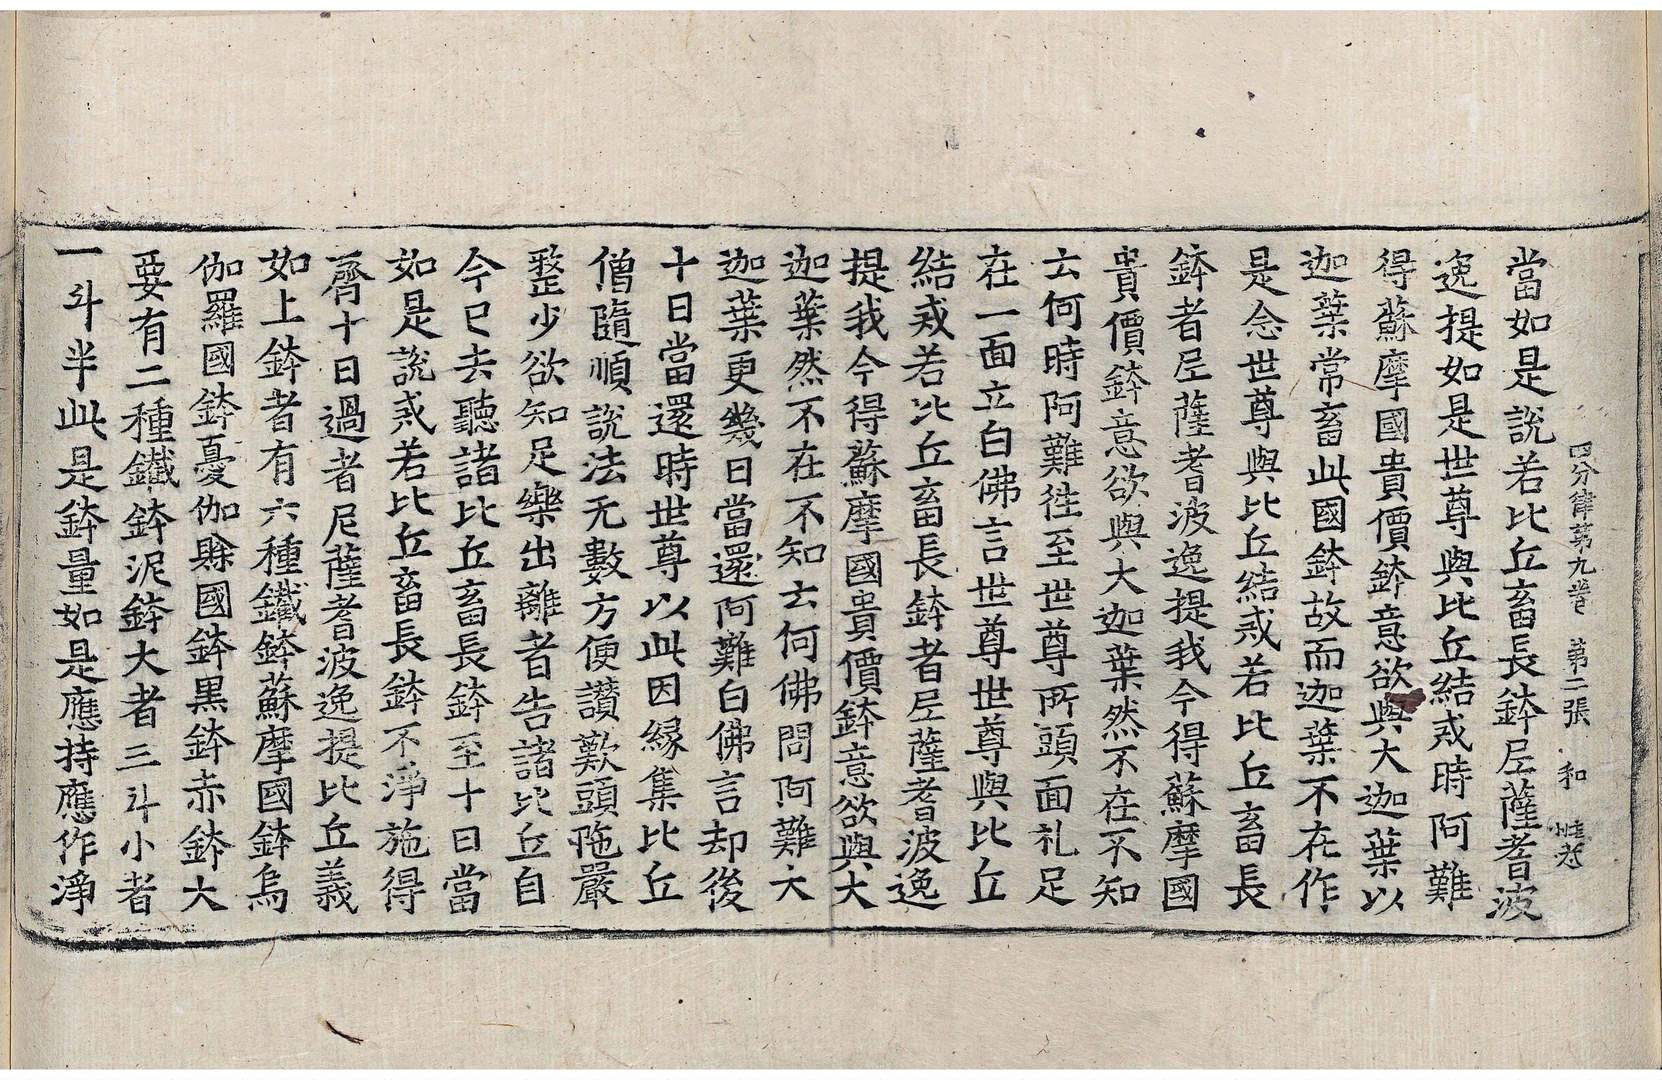 四分律第九卷 第二張 和
當如是說若比丘畜長鉢尼薩耆波
逸提如是世尊與比丘結戒時阿難
得蘇摩國貴價鉢意欲與大迦葉以
迦葉常畜此國鉢故而迦葉不在作
是念世尊與比丘結戒若比丘畜長
鉢者尼薩耆波逸提我今得蘇摩國
貴價鉢意欲與大迦葉然不在不知
云何時阿難往至世尊所頭面礼足
在一面立白佛言世尊世尊與比丘
結戒若比丘畜長鉢者尼薩耆波逸
提我今得蘇摩國貴價鉢意欲與大
迦葉然不在不知云何佛問阿難大
迦葉更幾日當還阿難白佛言却後
十日當還時世尊以此因緣集比丘
僧隨順說法无數方便讚歎頭陁嚴
整少欲知足樂出離者告諸比丘自
今已去聽諸比丘畜長鉢至十日當
如是說戒若比丘畜長鉢不淨施得
齊十日過者尼薩耆波逸提比丘義
如上鉢者有六種鐵鉢蘇摩國鉢烏
伽羅國鉢憂伽賒國鉢黑鉢赤鉢大
要有二種鐵鉢泥鉢大者三斗小者
一斗半此是鉢量如是應持應作淨